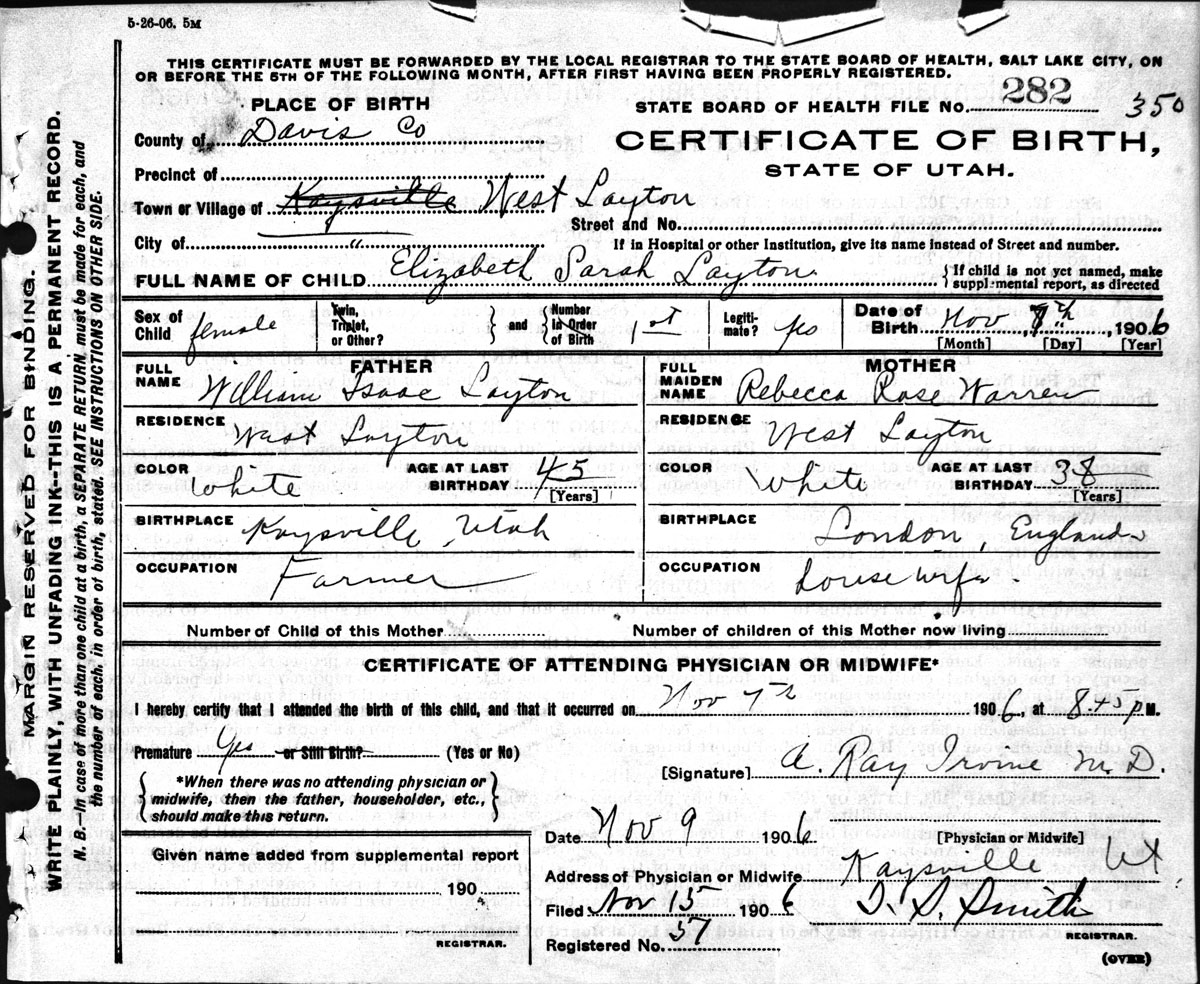 5-26-06. 5M
THIS CERTIFICATE MUST BE FORWARDED BY THE LOCAL REGISTRAR TO THE STATE BOARD OF HEALTH, SALT LAKE CITY, ON
OR BEFORE THE 5TH OF THE FOLLOWING MONTH, AFTER FIRST HAVING BEEN PROPERLY REGISTERED.
MARGIN RESERVED FOR BINDING.
WRITE PLAINLY, WITH UNFADING INK-THIS IS A PERMANENT RECORD.
N. B.—In case of more than one child at a birth, a SEPARATE RETURN must be made for each, and
the number of each in order of birth, stated. SEE INSTRUCTIONS ON OTHER SIDE.
PLACE OF BIRTH
STATE BOARD OF HEALTH FILE NO. 282 350
County of Davis Co
CERTIFICATE OF BIRTH,
STATE OF UTAH.
Precinct of
Town or Village of Kaysville West Layton
Street and No.
City of "
If in Hospital or other Institution, give its name instead of Street and number.
FULL NAME OF CHILD Elizabeth Sarah Layton
{If child is not yet named, make
supplemental report, as directed
Sex of Child female
Twin, Triplet, or Other? } and { Number in Order of Birth 1st
Legitimate? yes
Date of Birth Nov 7th, 1906
[Month] [Day] [Year]
FATHER
FULL NAME William Isaac Layton
RESIDENCE West Layton
COLOR White AGE AT LAST BIRTHDAY 45
[Years]
BIRTHPLACE Kaysville, Utah
OCCUPATION Farmer
MOTHER
FULL MAIDEN NAME Rebecca Rose Warren
RESIDENCE West Layton
COLOR White AGE AT LAST BIRTHDAY 38
[Years]
BIRTHPLACE London, England
OCCUPATION housewife.
Number of Child of this Mother
Number of children of this Mother now living
CERTIFICATE OF ATTENDING PHYSICIAN OR MIDWIFE*
I hereby certify that I attended the birth of this child, and that it occurred on Nov 7th 1906, at 8.45 P M.
Premature Yes or Still Birth? (Yes or No)
{*When there was no attending physician or
midwife, then the father, householder, etc.,
should make this return.}
[Signature] A. Ray Irvine M.D.
[Physician or Midwife]
Date Nov 9 1906
Address of Physician or Midwife Kaysville Ut
Given name added from supplemental report
190
REGISTRAR.
Filed Nov 15 1906 Smith
REGISTRAR.
Registered No. 57
(OVER)